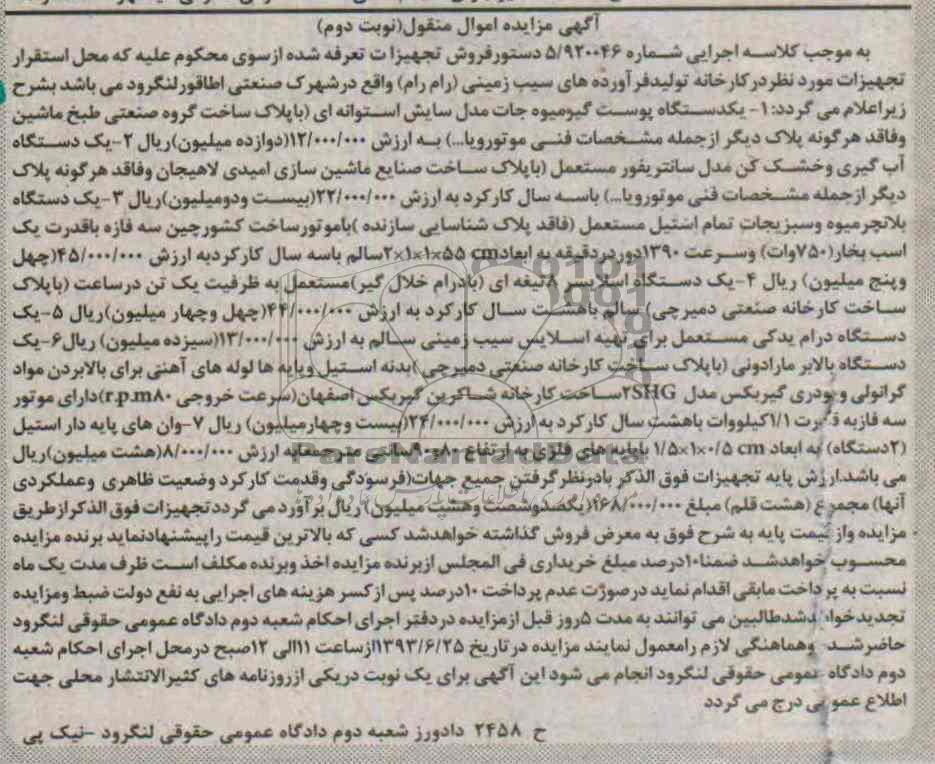 آگهی مزایده اموال منقول(نوبت دوم)
به موجب کلاسه اجرایی شماره ۵/۹۲۰۰۴۶ دستورفروش تجهیزات تعرفه شده ازسوی محکوم علیه که محل استقرار
تجهیزات مورد نظر در کارخانه تولیدفرآورده های سیب زمینی (رام رام) واقع درشهرک صنعتی اطاقور لنگرود می باشد بشرح
زیراعلام می گردد: ۱- یکدستگاه پوست گیرمیوه جات مدل سایش استوانه ای (باپلاک ساخت گروه صنعتی طبخ ماشین
وفاقد هرگونه پلاک دیگر ازجمله مشخصات فنی موتورویا...) به ارزش ۱۲/۰۰۰/۰۰۰(دوازده میلیون)ریال ۲-یک دستگاه
آب گیری وخشک کن مدل سانتریفور مستعمل (باپلاک ساخت صنایع ماشین سازی امیدی لاهیجان وفاقد هرگونه پلاک
دیگر ازجمله مشخصات فنی موتورویا...) باسه سال کارکرد به ارزش ۲۲/۰۰۰/۰۰۰(بیست ودومیلیون)ریال ۳-یک دستگاه
بلانچرمیوه وسبزیجات تمام استیل مستعمل (فاقد پلاک شناسایی سازنده )باموتورساخت کشورچین سه فازه باقدرت یک
اسب بخار(۷۵۰وات) وسرعت ۱۳۹۰دوردردقیقه به ابعاد۲×۱×۱×۵۵ cmسالم باسه سال کارکردبه ارزش ۴۵/۰۰۰/۰۰۰(چهل
وپنج میلیون) ریال ۴-یک دستگاه اسلایسر ۸تیغه ای (بادرام خلال گیر)مستعمل به ظرفیت یک تن درساعت (باپلاک
ساخت کارخانه صنعتی دمیرچی) سالم باهشت سال کارکرد به ارزش ۴۴/۰۰۰/۰۰۰(چهل وچهار میلیون)ریال ۵-یک
دستگاه درام یدکی مستعمل برای تهیه اسلایس سیب زمینی سالم به ارزش ۱۳/۰۰۰/۰۰۰(سیزده میلیون) ریال۶-یک
دستگاه بالابر مارادونی (باپلاک ساخت کارخانه صنعتی دمیرچی )بدنه استیل وپایه ها لوله های آهنی برای بالابردن مواد
گرانولی وپودری گیربکس مدل ۲SHGساخت کارخانه شاکرین گیربکس اصفهان(سرعت خروجی r.p.m۸۰)دارای موتور
سه فازبه قدرت ۱/۱کیلووات باهشت سال کارکرد به ارزش ۲۴/۰۰۰/۰۰۰(بیست وچهارمیلیون) ریال ۷-وان های پایه دار استیل
(۲دستگاه) به ابعاد ۱/۵×۱×۰/۵ cm باپایه های فلزی به ارتفاع ۸۰و۹۰سانتی متر جمعابه ارزش ۸/۰۰۰/۰۰۰(هشت میلیون)ریال
می باشد.ارزش پایه تجهیزات فوق الذکر بادرنظرگرفتن جمیع جهات(فرسودگی وقدمت کارکرد وضعیت ظاهری وعملکردی
آنها) مجموع (هشت قلم) مبلغ ۱۶۸/۰۰۰/۰۰۰(یکصدوشصت وهشت میلیون) ریال برآورد می گردد تجهیزات فوق الذکرازطریق
مزایده واز قیمت پایه به شرح فوق به معرض فروش گذاشته خواهدشد کسی که بالاترین قیمت راپیشنهادنماید برنده مزایده
محسوب خواهدشد ضمنا۱۰درصد مبلغ خریداری فی المجلس ازبرنده مزایده اخذ وبرنده مکلف است ظرف مدت یک ماه
نسبت به پرداخت مابقی اقدام نماید درصورت عدم پرداخت ۱۰درصد پس از کسر هزینه های اجرایی به نفع دولت ضبط ومزایده
تجدیدخواهدشدطالبین می توانند به مدت ۵روز قبل ازمزایده در دفتر اجرای احکام شعبه دوم دادگاه عمومی حقوقی لنگرود
حاضرشده وهماهنگی لازم رامعمول نمایند مزایده در تاریخ ۱۳۹۳/۶/۲۵ازساعت ۱۱الی ۱۲صبح درمحل اجرای احکام شعبه
دوم دادگاه عمومی حقوقی لنگرود انجام می شود این آگهی برای یک نوبت دریکی ازروزنامه های کثیرالانتشار محلی جهت
اطلاع عمومی درج می گردد
ح ۲۴۵۸ دادورز شعبه دوم دادگاه عمومی حقوقی لنگرود -نیک پی
ParsNamadData